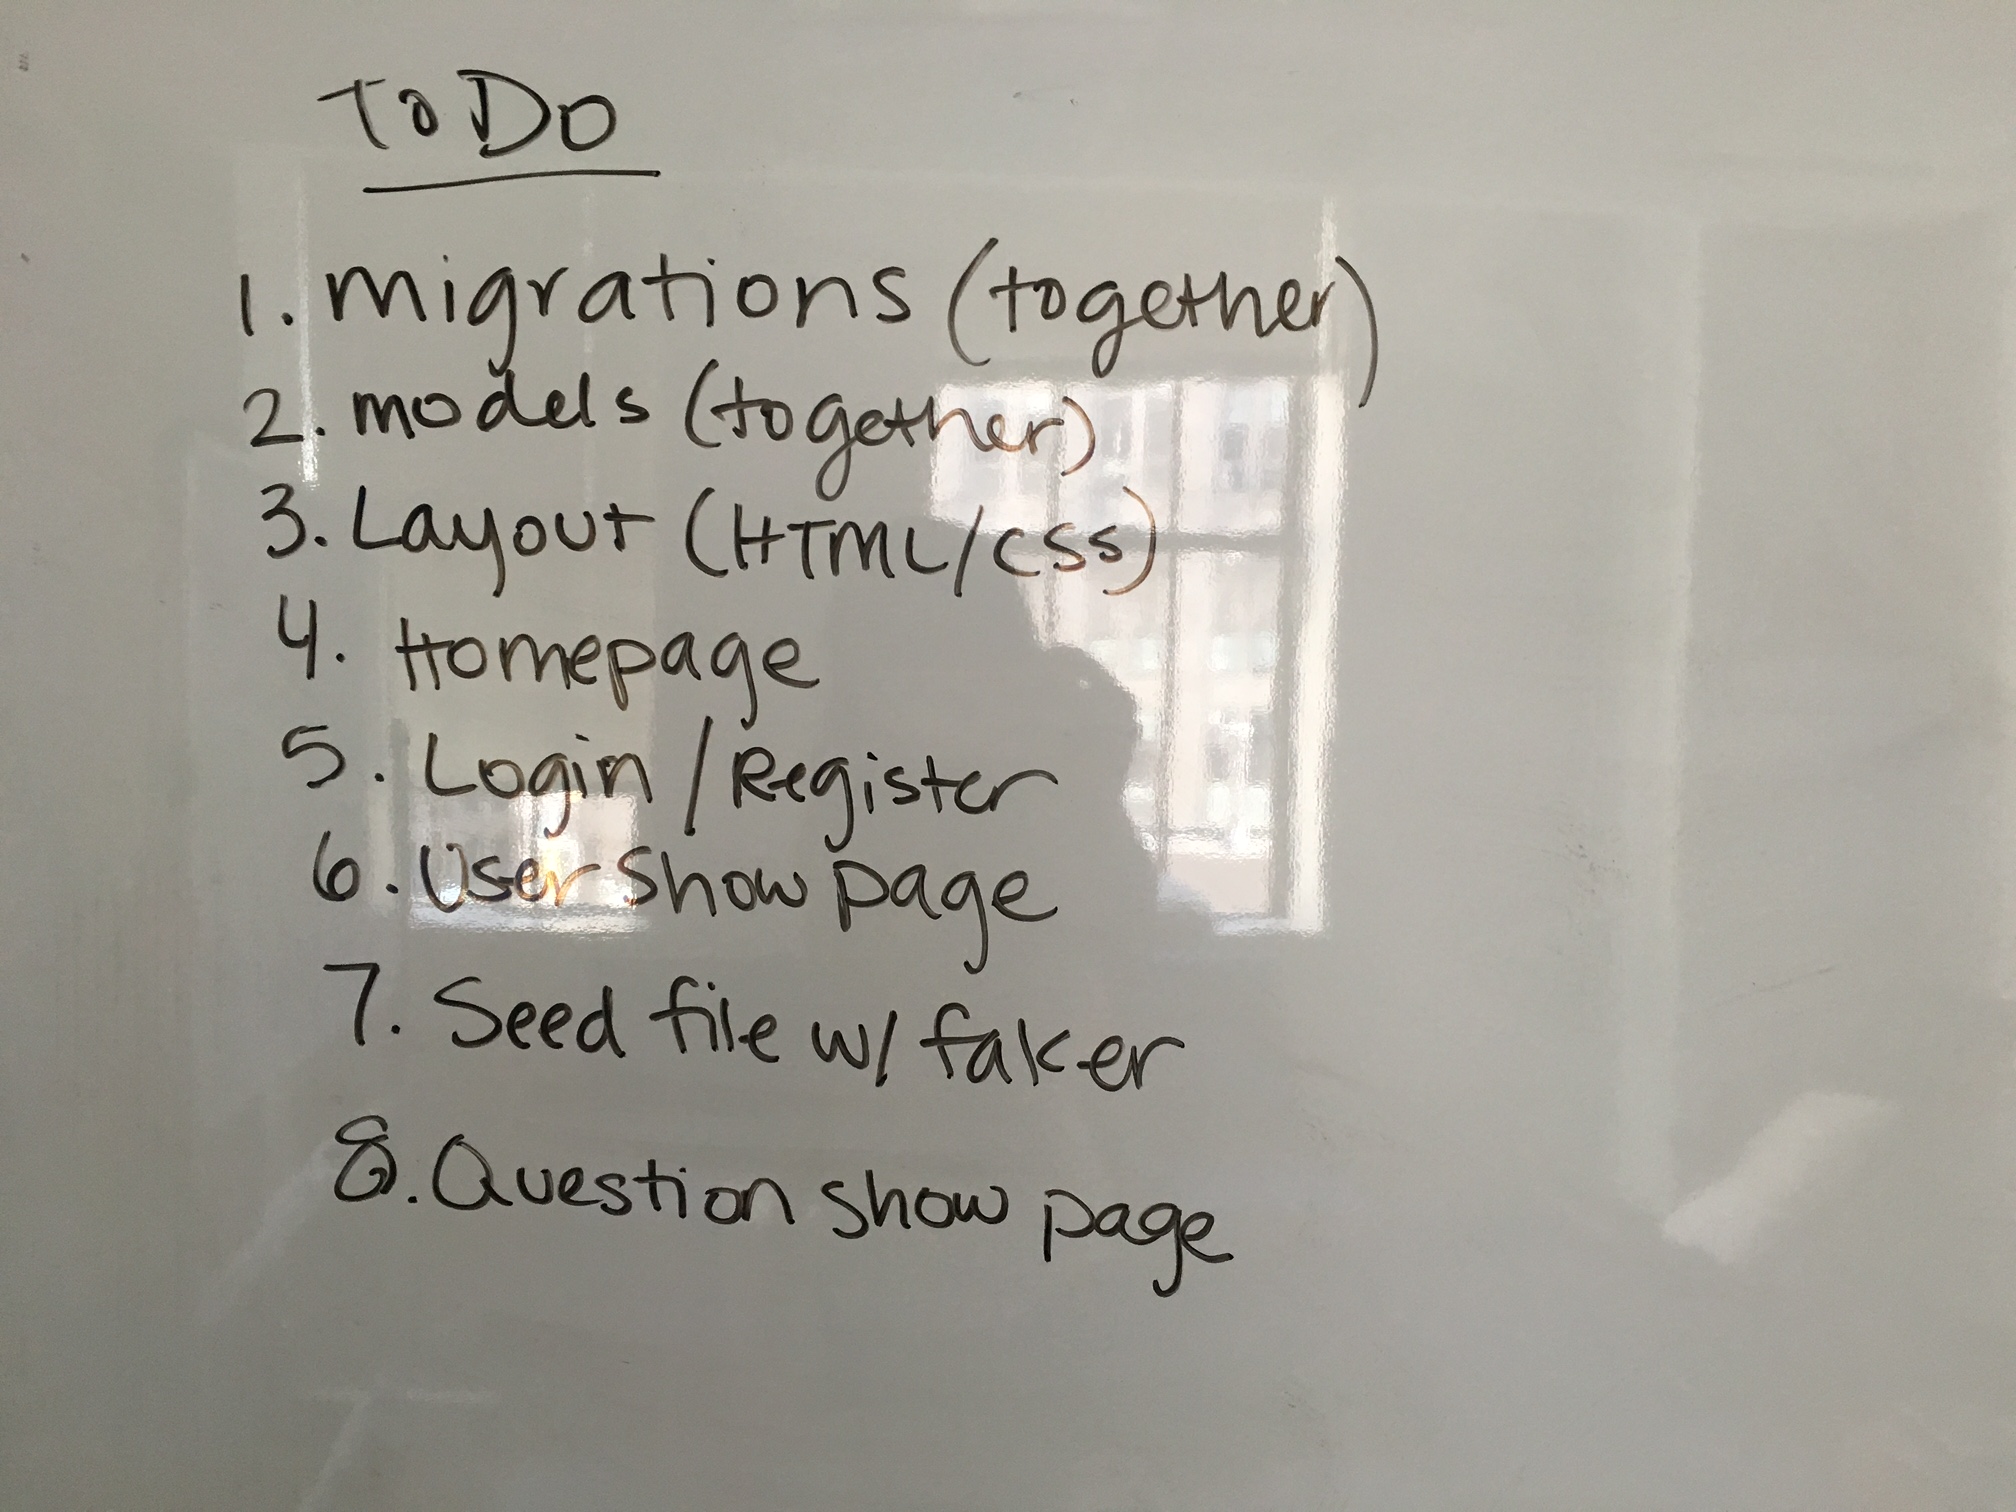 To Do
1. migrations (together)
2. models (together)
3. Layout (HTML/CSS)
4. Homepage
5. Login / Register
6. User Show page
7. Seed file w/ faker
8. Question show page